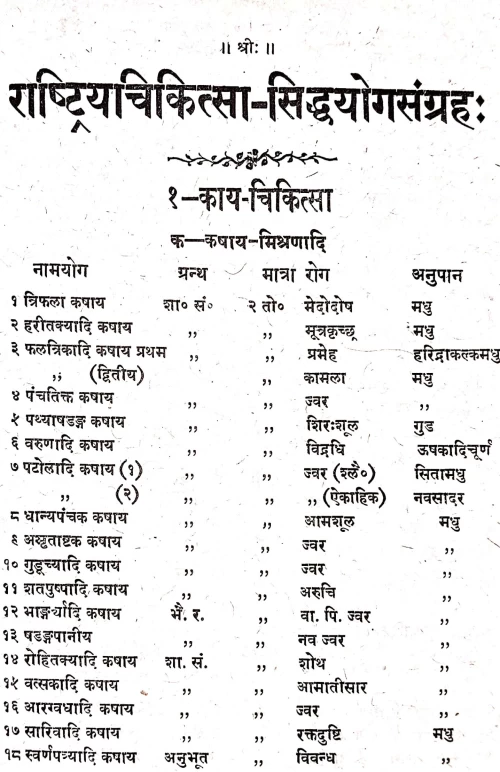 ॥ श्रीः ॥
राष्ट्रियचिकित्सा-सिद्धयोगसंग्रहः
१—काय-चिकित्सा
क—कषाय-मिश्रणादि
नामयोग ग्रन्थ मात्रा रोग अनुपान
१ त्रिफला कषाय शा० सं० २ तो० मेदोदोष मधु
२ हरीतक्यादि कषाय ,, ,, मूत्रकृच्छ्र मधु
३ फलत्रिकादि कषाय प्रथम ,, ,, प्रमेह हरिद्राकल्कमधु
,, (द्वितीय) ,, कामला मधु
४ पंचतिक्त कषाय ,, ,, ज्वर ,,
५ पथ्याषडङ्ग कषाय ,, ,, शिरःशूल गुड
६ वरुणादि कषाय ,, ,, विद्रधि ऊषकादिचूर्ण
७ पटोलादि कषाय (१) ,, ,, ज्वर (श्लै०) सितामधु
,, (२) ,, ,, ,, (ऐकाहिक) नवसादर
८ धान्यपंचक कषाय ,, ,, आमशूल मधु
९ अमृताष्टक कषाय ,, ,, ज्वर ,,
१० गुडूच्यादि कषाय ,, ,, ज्वर ,,
११ शतपुष्पादि कषाय ,, ,, अरुचि ,,
१२ भार्ङ्ग्यादि कषाय भै. र. ,, वा. पि. ज्वर ,,
१३ षडङ्गपानीय ,, नव ज्वर ,,
१४ रोहितक्यादि कषाय शा. सं. ,, शोथ ,,
१५ वत्सकादि कषाय ,, ,, आमातीसार ,,
१६ आरग्वधादि कषाय ,, ,, ज्वर ,,
१७ सारिवादि कषाय ,, ,, रक्तदुष्टि मधु
१८ स्वर्णपत्र्यादि कषाय अनुभूत ,, विवन्ध ,,